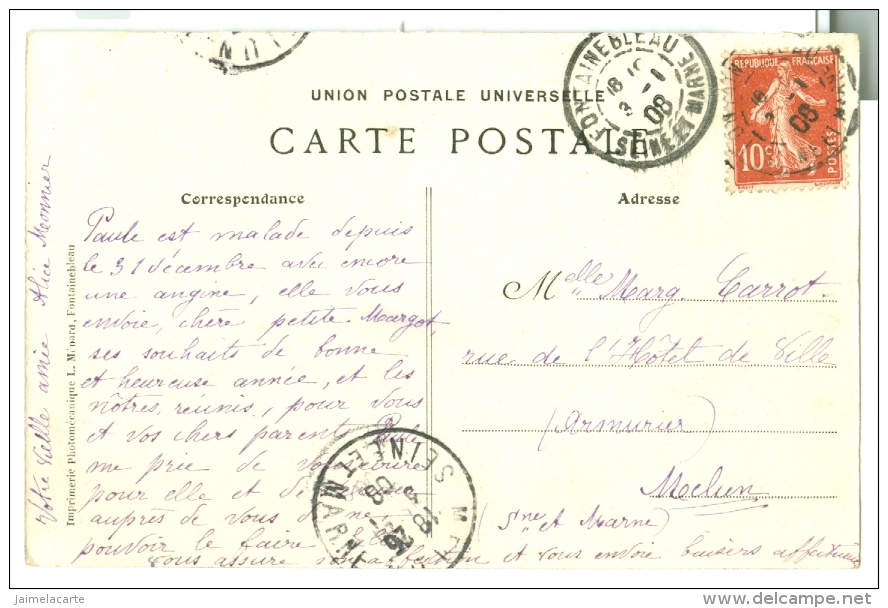 UNION POSTALE UNIVERSELLE
CARTE POSTALE
FONTAINEBLEAU
SEINE ET MARNE
08
REPUBLIQUE FRANÇAISE
10c
POSTES
Correspondance
Adresse
Paule est malade depuis
le 31 décembre avec encore
une angine, elle vous
envoie, chère petite Margot,
ses souhaits de bonne
et heureuse année, et les
nôtres, réunis, pour vous
et vos chers parents, Paule
me prie de
pour elle et
auprès de vous de ne
pouvoir le faire. Elle
vous assure son affection et vous envoie baisers affectueux
Votre vieille amie Alice Meonnier
Imprimerie Photomécanique L. Ménard, Fontainebleau
Melle Marg. Carrot.
rue de l'Hôtel de Ville
(Armurier)
Melun
(Sne et Marne)
SEINE ET MARNE
08
© jaimelacarte
http://www.delcampe.net